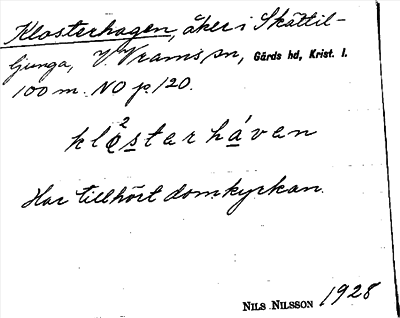 Klosterhagen, åker i Skättil-
ljunga, V. Vrams sn, Gärds hd, Krist. l.
100 m. NO p. 120.
klo²sterháven
Har tillhört domkyrkan.
NILS NILSSON 1928